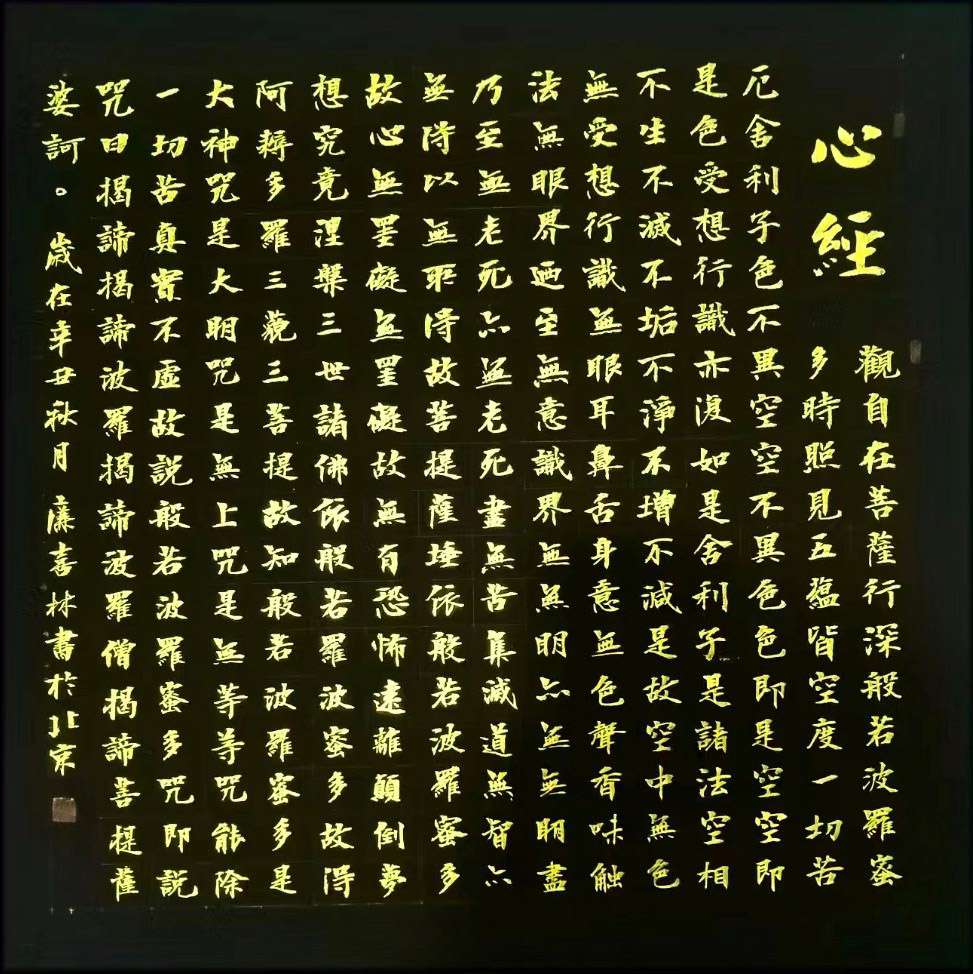 心經
觀自在菩薩行深般若波羅蜜
多時照見五蘊皆空度一切苦
厄舍利子色不異空空不異色色即是空空即
是色受想行識亦復如是舍利子是諸法空相
不生不滅不垢不淨不增不減是故空中無色
無受想行識無眼耳鼻舌身意無色聲香味触
法無眼界迺至無意識界無無明亦無無明盡
乃至無老死亦無老死盡無苦集滅道無智亦
無得以無所得故菩提薩埵依般若波羅蜜多
故心無罣礙無罣礙故無有恐怖遠離顛倒夢
想究竟涅槃三世諸佛依般若羅波蜜多故得
阿耨多羅三藐三菩提故知般若波羅蜜多是
大神咒是大明咒是無上咒是無等等咒能除
一切苦真實不虛故説般若波羅蜜多咒即説
咒曰揭諦揭諦波羅揭諦波羅僧揭諦菩提薩
婆訶。歲在辛丑秋月廉喜林書於北京